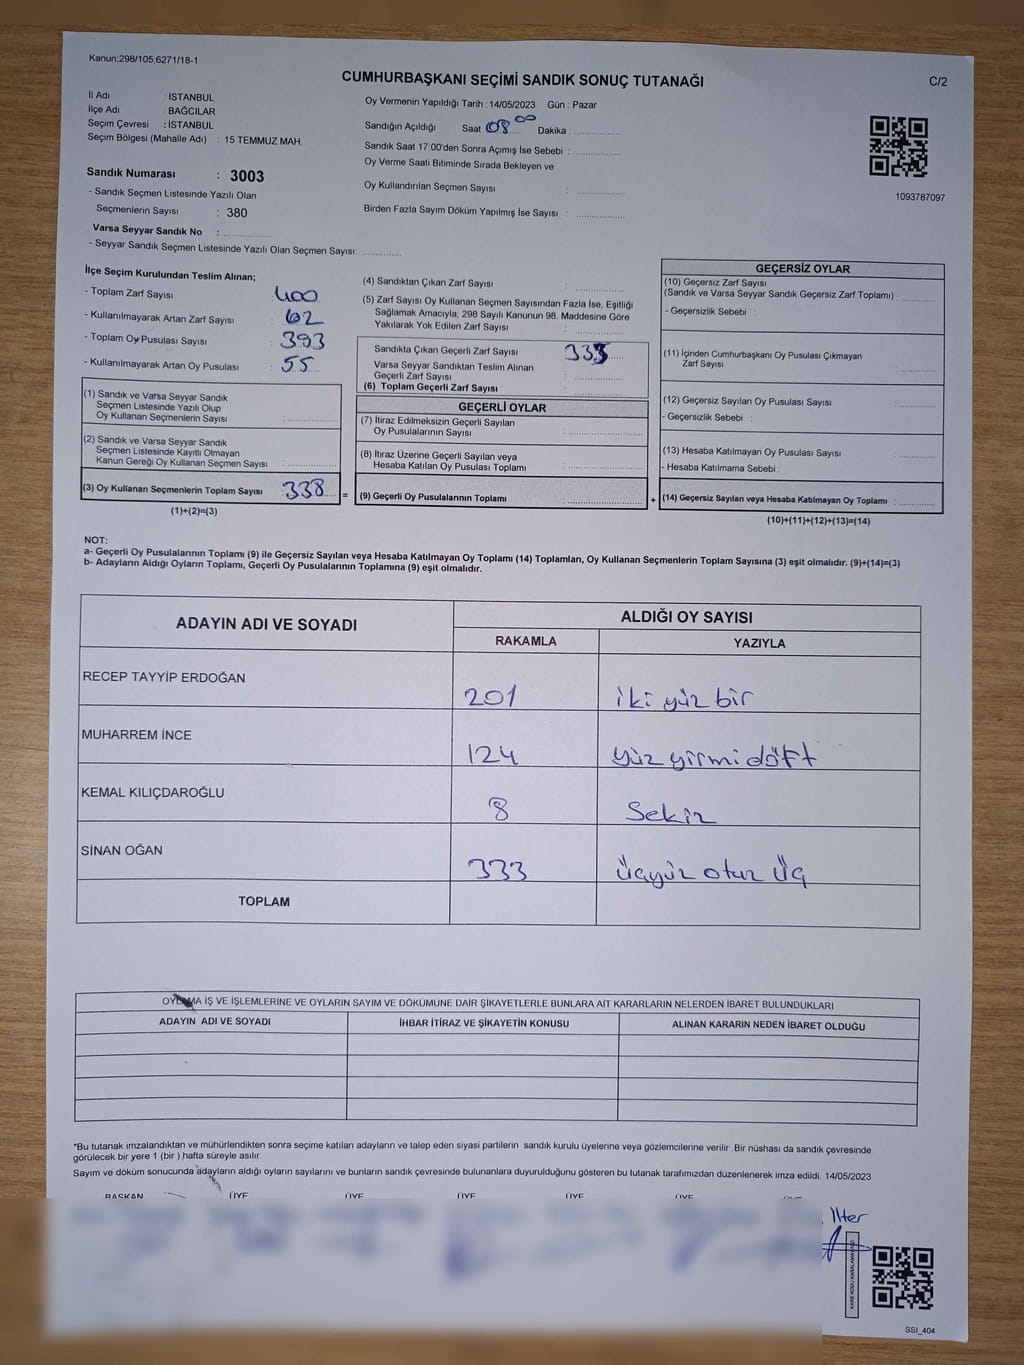 Kanun;298/105;6271/18-1
CUMHURBAŞKANI SEÇİMİ SANDIK SONUÇ TUTANAĞI
C/2
İl Adı : İSTANBUL
İlçe Adı : BAĞCILAR
Seçim Çevresi : İSTANBUL
Seçim Bölgesi (Mahalle Adı) : 15 TEMMUZ MAH.
Oy Vermenin Yapıldığı Tarih : 14/05/2023 Gün : Pazar
Sandığın Açıldığı Saat 08 00 Dakika :
Sandık Saat 17:00'den Sonra Açımış İse Sebebi :
Oy Verme Saati Bitiminde Sırada Bekleyen ve
Oy Kullandırılan Seçmen Sayısı :
Birden Fazla Sayım Döküm Yapılmış İse Sayısı :
1093787097
Sandık Numarası : 3003
- Sandık Seçmen Listesinde Yazılı Olan
Seçmenlerin Sayısı : 380
Varsa Seyyar Sandık No :
- Seyyar Sandık Seçmen Listesinde Yazılı Olan Seçmen Sayısı:
İlçe Seçim Kurulundan Teslim Alınan;
- Toplam Zarf Sayısı : 400
- Kullanılmayarak Artan Zarf Sayısı : 62
- Toplam Oy Pusulası Sayısı : 393
- Kullanılmayarak Artan Oy Pusulası : 55
(1) Sandık ve Varsa Seyyar Sandık
Seçmen Listesinde Yazılı Olup
Oy Kullanan Seçmenlerin Sayısı :
(2) Sandık ve Varsa Seyyar Sandık
Seçmen Listesinde Kayıtlı Olmayan
Kanun Gereği Oy Kullanan Seçmen Sayısı :
(3) Oy Kullanan Seçmenlerin Toplam Sayısı : 338 =
(1)+(2)=(3)
(4) Sandıktan Çıkan Zarf Sayısı :
(5) Zarf Sayısı Oy Kullanan Seçmen Sayısından Fazla İse, Eşitliği
Sağlamak Amacıyla; 298 Sayılı Kanunun 98. Maddesine Göre
Yakılarak Yok Edilen Zarf Sayısı :
Sandıkta Çıkan Geçerli Zarf Sayısı :
Varsa Seyyar Sandıktan Teslim Alınan
Geçerli Zarf Sayısı :
(6) Toplam Geçerli Zarf Sayısı :
GEÇERLİ OYLAR
(7) İtiraz Edilmeksizin Geçerli Sayılan
Oy Pusulalarının Sayısı :
(8) İtiraz Üzerine Geçerli Sayılan veya
Hesaba Katılan Oy Pusulası Toplamı :
(9) Geçerli Oy Pusulalarının Toplamı : +
GEÇERSİZ OYLAR
(10) Geçersiz Zarf Sayısı
(Sandık ve Varsa Seyyar Sandık Geçersiz Zarf Toplamı) :
- Geçersizlik Sebebi :
(11) İçinden Cumhurbaşkanı Oy Pusulası Çıkmayan
Zarf Sayısı :
(12) Geçersiz Sayılan Oy Pusulası Sayısı :
- Geçersizlik Sebebi :
(13) Hesaba Katılmayan Oy Pusulası Sayısı :
- Hesaba Katılmama Sebebi :
(14) Geçersiz Sayılan veya Hesaba Katılmayan Oy Toplamı :
(10)+(11)+(12)+(13)=(14)
NOT:
a- Geçerli Oy Pusulalarının Toplamı (9) ile Geçersiz Sayılan veya Hesaba Katılmayan Oy Toplamı (14) Toplamları, Oy Kullanan Seçmenlerin Toplam Sayısına (3) eşit olmalıdır. (9)+(14)=(3)
b- Adayların Aldığı Oyların Toplamı, Geçerli Oy Pusulalarının Toplamına (9) eşit olmalıdır.
ADAYIN ADI VE SOYADI
ALDIĞI OY SAYISI
RAKAMLA YAZIYLA
RECEP TAYYİP ERDOĞAN 201 iki yüz bir
MUHARREM İNCE 124 yüz yirmi dört
KEMAL KILIÇDAROĞLU 8 Sekiz
SİNAN OĞAN 333 üçyüz otuz üç
TOPLAM
OYLAMA İŞ VE İŞLEMLERİNE VE OYLARIN SAYIM VE DÖKÜMÜNE DAİR ŞİKAYETLERLE BUNLARA AİT KARARLARIN NELERDEN İBARET BULUNDUKLARI
ADAYIN ADI VE SOYADI İHBAR İTİRAZ VE ŞİKAYETİN KONUSU ALINAN KARARIN NEDEN İBARET OLDUĞU
*Bu tutanak imzalandıktan ve mühürlendikten sonra seçime katılan adayların ve talep eden siyasi partilerin sandık kurulu üyelerine veya gözlemcilerine verilir. Bir nüshası da sandık çevresinde
görülecek bir yere 1 (bir ) hafta süreyle asılır.
Sayım ve döküm sonucunda adayların aldığı oyların sayılarını ve bunların sandık çevresinde bulunanlara duyurulduğunu gösteren bu tutanak tarafımızdan düzenlenerek imza edildi. 14/05/2023
BAŞKAN ÜYE ÜYE ÜYE ÜYE ÜYE
İlter
SSI_404